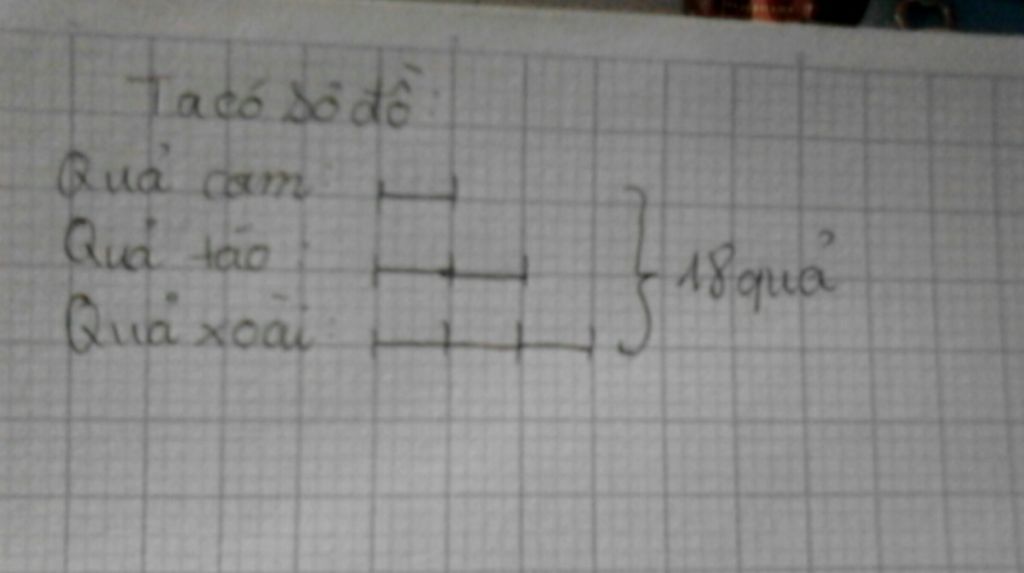 Ta có sơ đồ:
Quả cam:
Quả táo:
Quả xoài:
18 quả